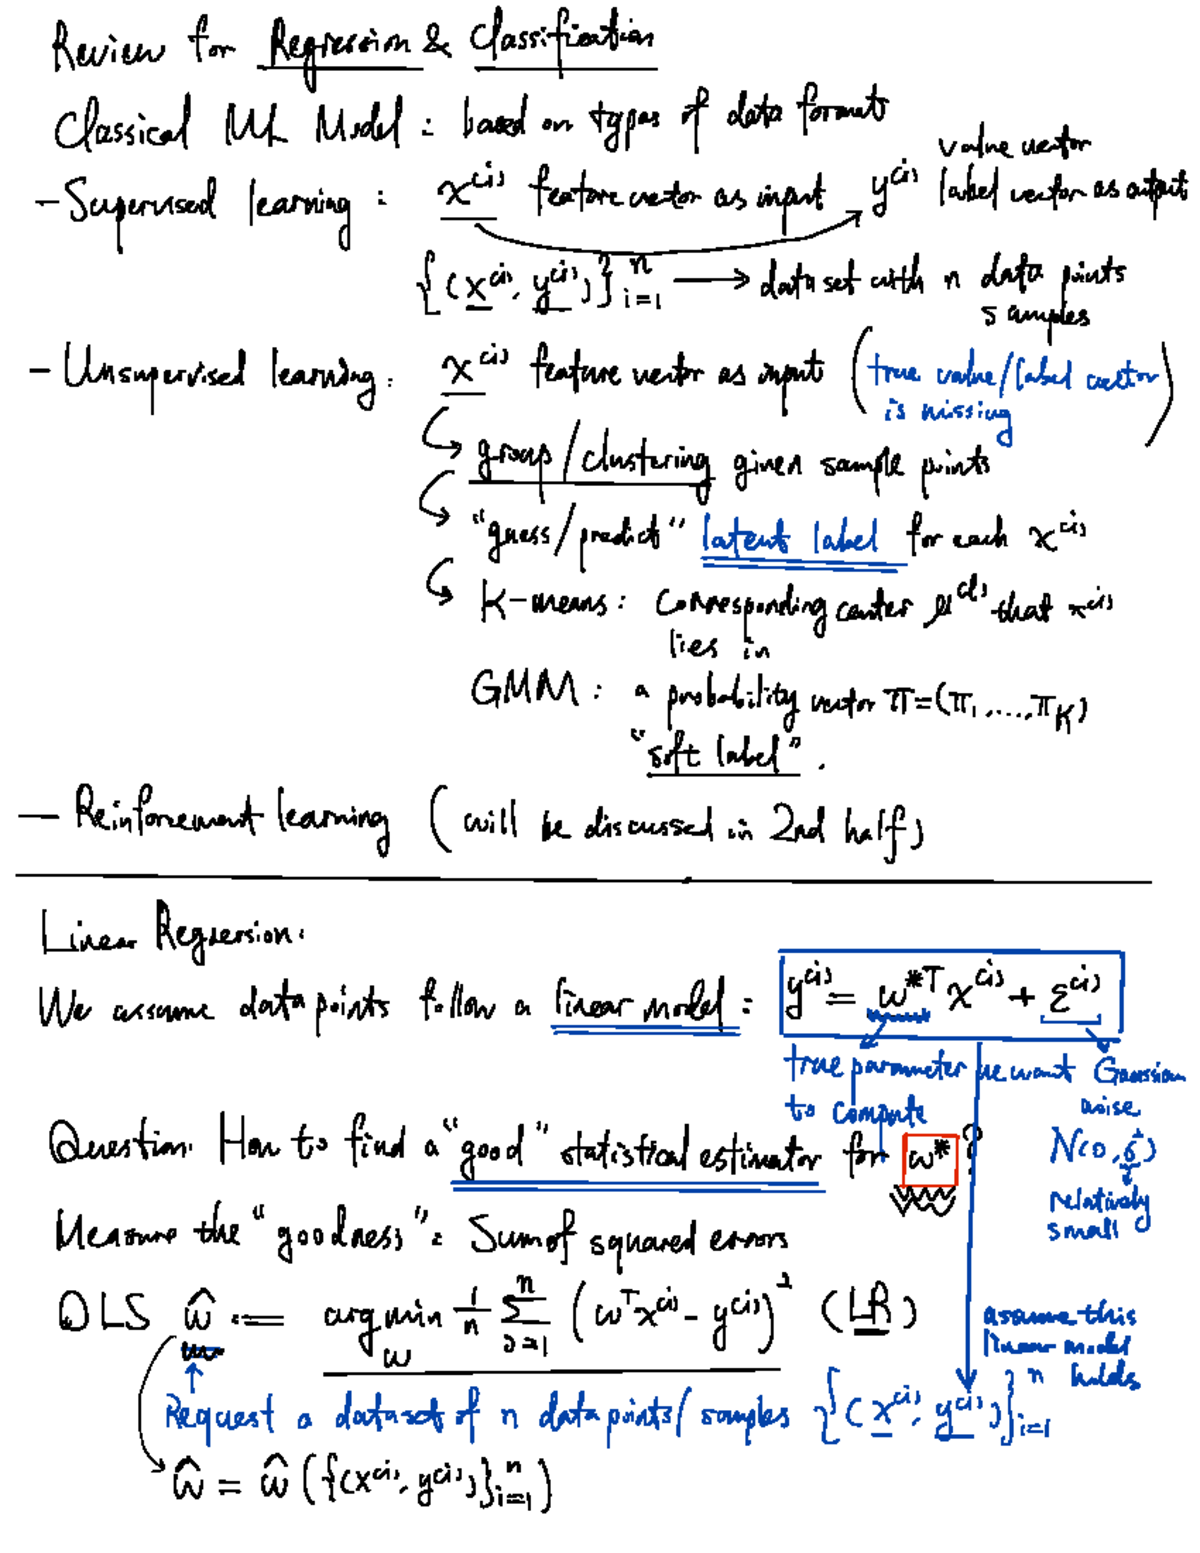 Review for Regression & Classification
Classical ML Model: based on types of data formats
value vector
- Supervised learning: x^(i) feature vector as input y^(i) label vector as output
{(x^(i), y^(i))}_{i=1}^n → data set with n data points
samples
- Unsupervised learning: x^(i) feature vector as input (true value/label vector
is missing)
↪ group/clustering given sample points
↪ "guess/predict" latent label for each x^(i)
↪ K-means: Corresponding center μ^(j) that x^(i)
lies in
GMM: a probability vector π=(π_1,...,π_K)
"soft label".
- Reinforcement learning (will be discussed in 2nd half)
Linear Regression:
We assume data points follow a linear model: y^(i) = w^{*T} x^(i) + ε^(i)
true parameter we want to compute
Gaussian noise
N(0, σ²)
relatively small
Question: How to find a "good" statistical estimator for w* ?
Measure the "goodness": Sum of squared errors
OLS ŵ := arg min_w 1/n Σ_{i=1}^n (w^T x^(i) - y^(i))² (LR)
assume this
linear model
holds
Request a dataset of n data points/samples {(x^(i), y^(i))}_{i=1}^n
ŵ = ŵ({(x^(i), y^(i))}_{i=1}^n)